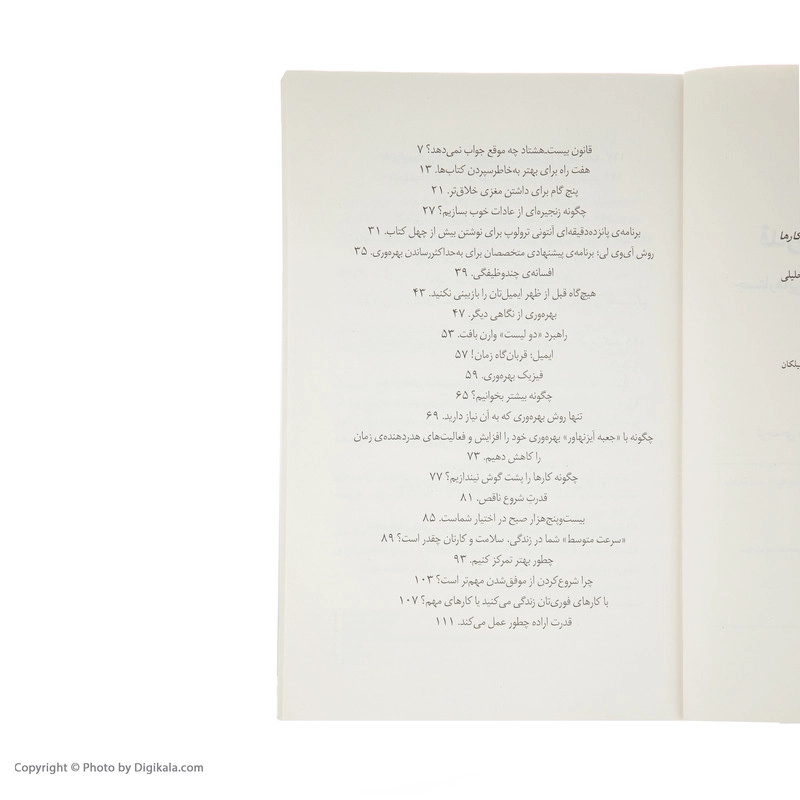 قانون بیست‌هشتاد چه موقع جواب نمی‌دهد؟ ۷
هفت راه برای بهتر به‌خاطرسپردن کتاب‌ها. ۱۳
پنج گام برای داشتن مغزی خلاق‌تر. ۲۱
چگونه زنجیره‌ای از عادات خوب بسازیم؟ ۲۷
برنامه‌ی پانزده‌دقیقه‌ای آنتونی ترولوپ برای نوشتن بیش از چهل کتاب. ۳۱
روش آی‌وی لی؛ برنامه‌ی پیشنهادی متخصصان برای به‌حداکثررساندن بهره‌وری. ۳۵
افسانه‌ی چندوظیفگی. ۳۹
هیچ‌گاه قبل از ظهر ایمیل‌تان را بازبینی نکنید. ۴۳
بهره‌وری از نگاهی دیگر. ۴۷
راهبرد «دو لیست» وارن بافت. ۵۳
ایمیل؛ قربان‌گاه زمان! ۵۷
فیزیک بهره‌وری. ۵۹
چگونه بیشتر بخوانیم؟ ۶۵
تنها روش بهره‌وری که به آن نیاز دارید. ۶۹
چگونه با «جعبه آیزنهاور» بهره‌وری خود را افزایش و فعالیت‌های هدردهنده‌ی زمان
را کاهش دهیم. ۷۳
چگونه کارها را پشت گوش نیندازیم؟ ۷۷
قدرتِ شروع ناقص. ۸۱
بیست‌وپنج‌هزار صبح در اختیار شماست. ۸۵
«سرعت متوسط» شما در زندگی، سلامت و کارتان چقدر است؟ ۸۹
چطور بهتر تمرکز کنیم. ۹۳
چرا شروع‌کردن از موفق‌شدن مهم‌تر است؟ ۱۰۳
با کارهای فوری‌تان زندگی می‌کنید یا کارهای مهم؟ ۱۰۷
قدرت اراده چطور عمل می‌کند. ۱۱۱
کارها
Copyright © Photo by Digikala.com